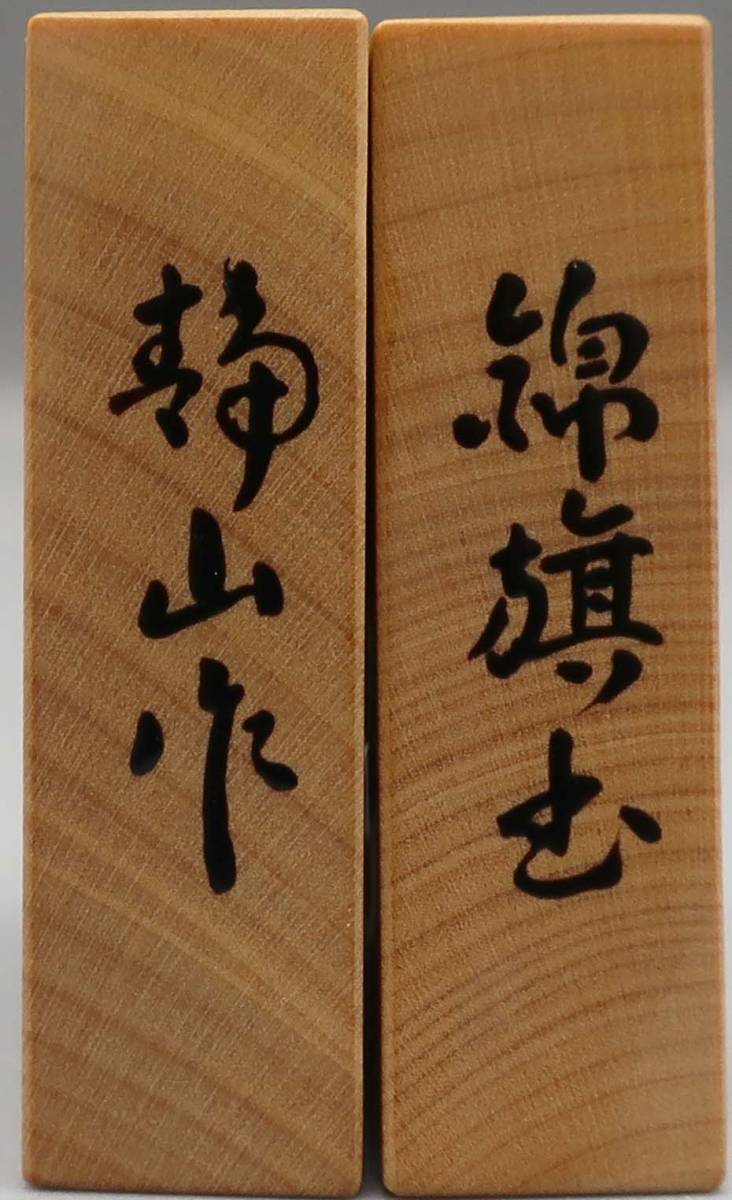 錦旗書
静山作